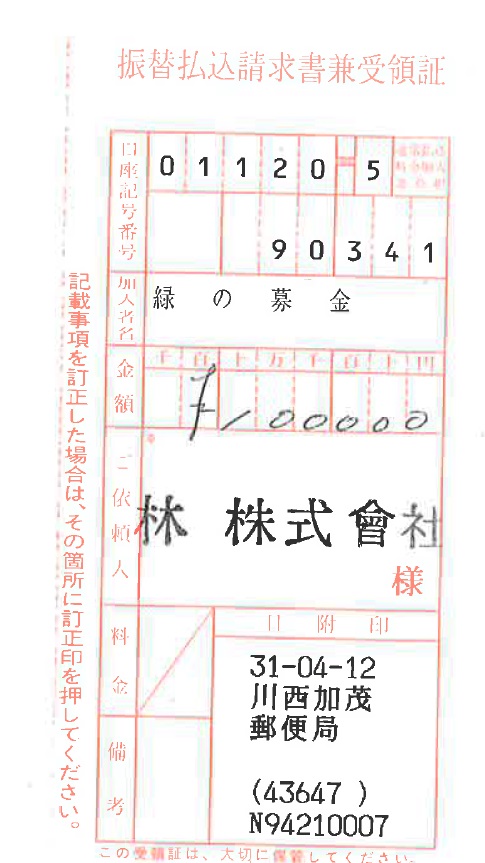 振替払込請求書兼受領証
口座記号番号
01120-5
90341
加入者名
緑の募金
金額
千百十万千百十円
¥100000
ご依頼人
林 株式會社
様
料金
日附印
31-04-12
川西加茂
郵便局
(43647 )
N94210007
備考
記載事項を訂正した場合は、その箇所に訂正印を押してください。
この受領証は、大切に保管してください。